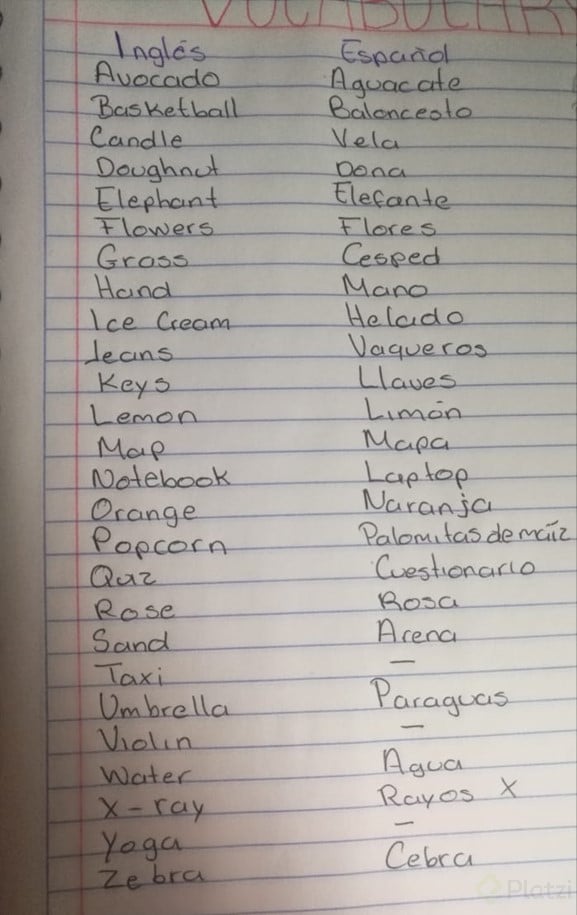 VOCABULARY
Inglés Español
Avocado Aguacate
Basketball Baloncesto
Candle Vela
Doughnut Dona
Elephant Elefante
Flowers Flores
Grass Cesped
Hand Mano
Ice Cream Helado
Jeans Vaqueros
Keys Llaves
Lemon Limón
Map Mapa
Notebook Laptop
Orange Naranja
Popcorn Palomitas de maíz
Quiz Cuestionario
Rose Rosa
Sand Arena
Taxi —
Umbrella Paraguas
Violin —
Water Agua
X-ray Rayos X
Yoga —
Zebra Cebra
Platzi